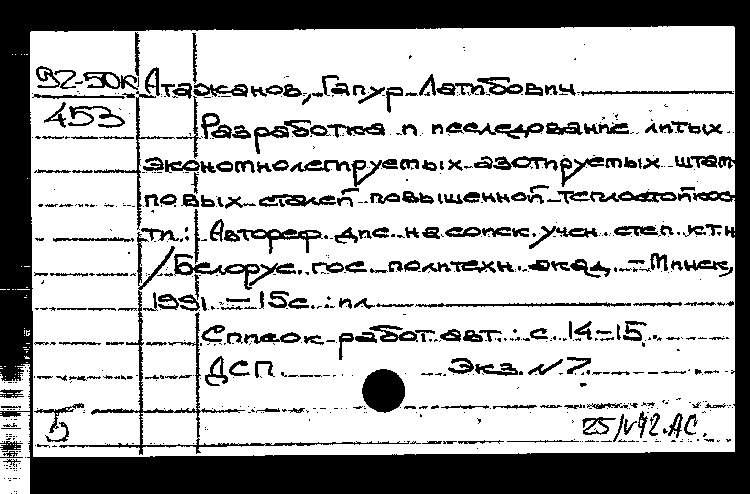 92-50к Атажанов, Гапур Латибович
453 Разработка и исследование литых
экономнолегируемых азотируемых штам
повых сталей повышенной теплостойкос
ти: Автореф. дис. на соиск. учен. степ. к.т.н
/Белорус. гос. политехн. акад. - Минск,
1991. - 15с. : ил
Список работ авт.: с. 14-15.
ДСП. Экз. N 7.
Б 25/IV92. АС.